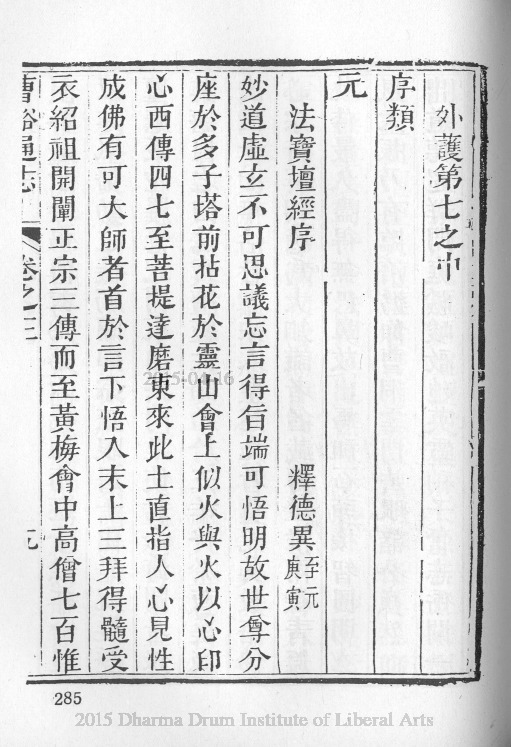 外護第七之中
序類
元
法寶壇經序 釋德異至元庚寅
妙道虛玄不可思議忘言得旨端可悟明故世尊分
座於多子塔前拈花於靈山會上似火與火以心印
心西傳四七至菩提達磨東來此土直指人心見性
成佛有可大師者首於言下悟入末上三拜得髓受
衣紹祖開闡正宗三傳而至黃梅會中高僧七百惟
曹谿通志 卷之三 元
285
2015-04-16
2015 Dharma Drum Institute of Liberal Arts